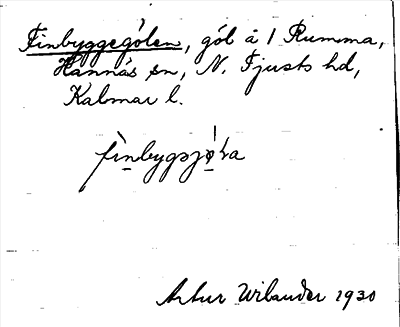 Finbyggegölen, göl å 1 Rumma,
Hannäs sn, N. Tjusts hd,
Kalmar l.
Artur Wilander 1930